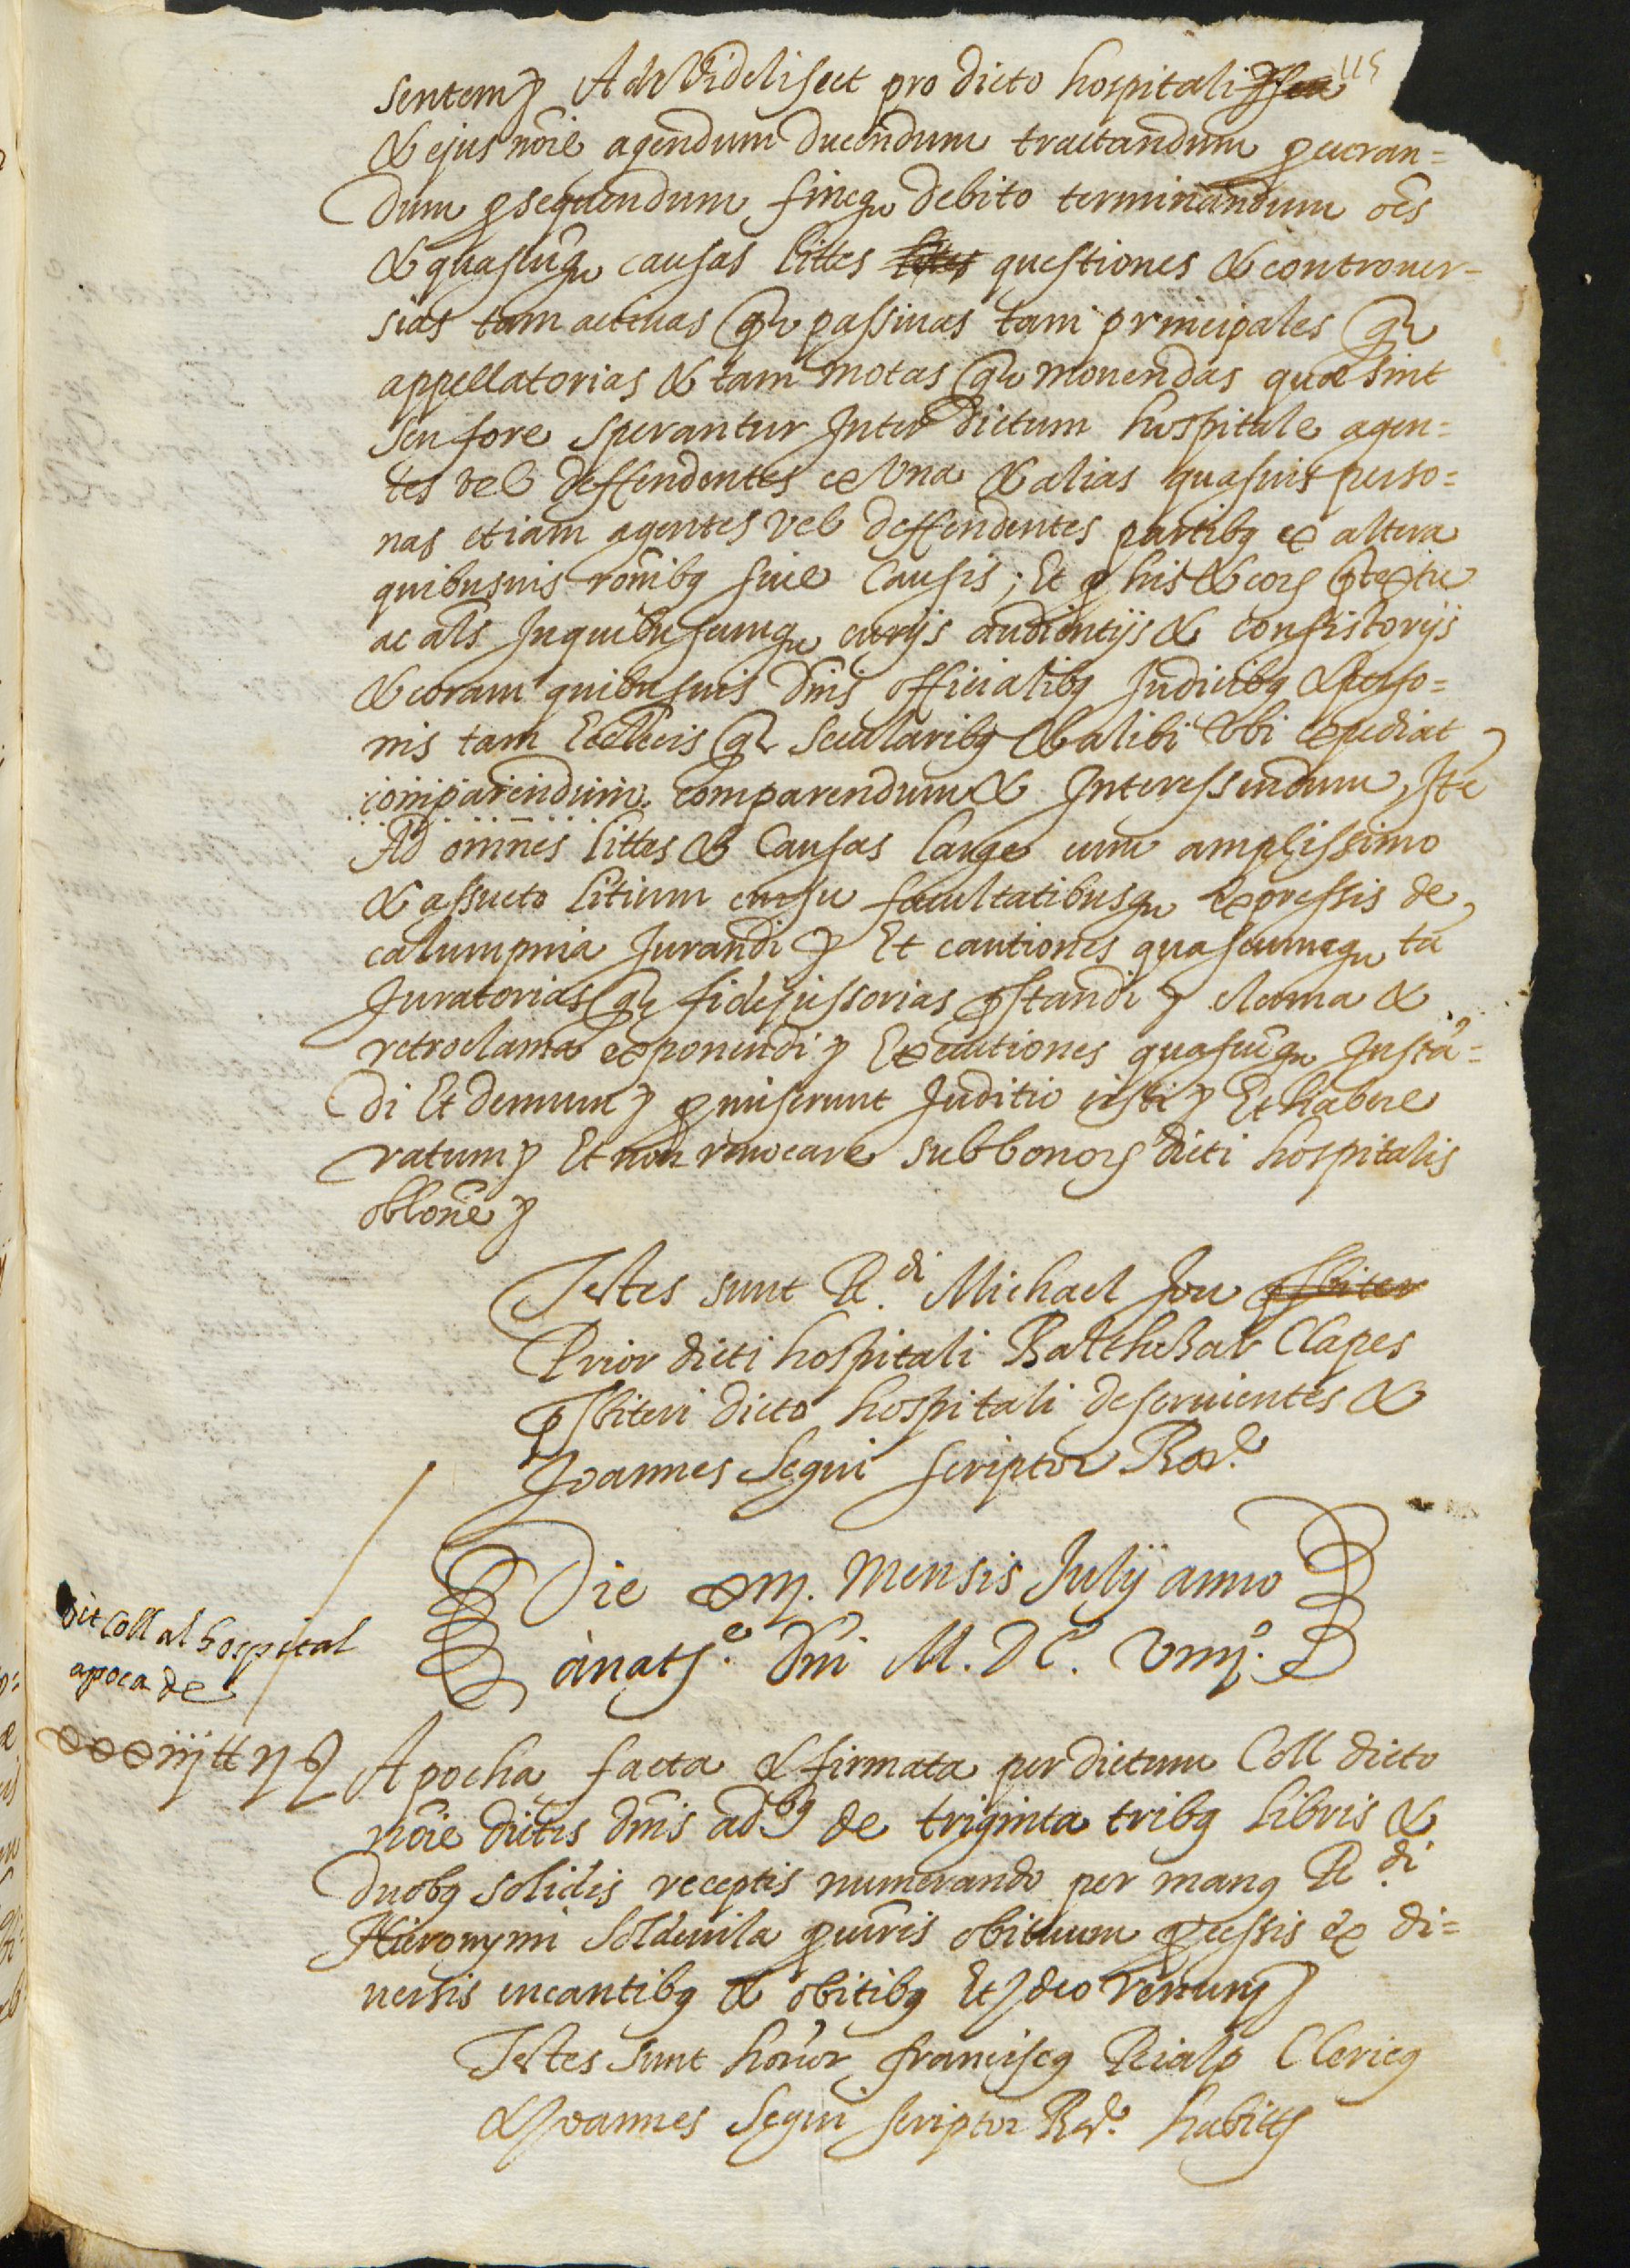 115
sentem Ad Videliset pro dicto hospitali
& ejus nōīe agendum ducendum tractandum ꝓcuran=
dum ꝓsequendum fineqꝫ debito terminandum ōēs
& quascūqꝫ causas littes littes questiones & controuer-
sias tam actiuas qꝫ passiuas tam principales qꝫ
appellatorias & tam motas qꝫ mouendas quæ sint
seu fore sperantur Inter dictum hospitale agen=
tes vel deffendentes ex vna & alias quasuis perso=
nas etiam agentes vel deffendentes partibꝫ ex altera
quibusuis rōnibꝫ siue causis; Et ꝓ his & eoꝝ p̄textu
ac als Inquibuscumqꝫ curijs audientijs & consistorijs
& coram quibusuis Dn̄is officialibꝫ Judicibꝫ & perso=
nis tam Ecclēcis qꝫ secularibꝫ & alibi vbi expediat
comparendum comparendum & Interessendum, Itē
Ad omnes littes & causas large cum amplissimo
& assueto litium cursu facultatibusqꝫ expressis de
calumpnia Jurandi Et cautiones quascumqꝫ tā
Juratorias qꝫ fidejussorias p̄standi clama &
retroclama exponendi Executiones quascūqꝫ Instā=
di Et demum ꝓmiserunt Juditio sisti Et habere
ratum Et non reuocare sub bonoꝝ dicti hospitalis
obloñe
Testes sunt R.di Michael Jou p̄sbiter
Prior dicti hospitali Balthesar Clapes
p̄sbiteri dicto hospitali deseruientes &
Joannes Segui scriptor Bar.e
Die xiij. mensis Julij anno
ànatꝭ.e Dn̄i M. DC. viiij.o
dit Coll al hospital
apoca de
xxxiij tt ij ß
Apocha facta & firmata per dictum Coll dicto
nōīe dictis dn̄is ad.bꝫ de triginta tribꝫ libris &
duobꝫ solidis receptis numerando per manꝫ R.di
Hieronymi Soldeuila ꝓcuris obituum ꝓcessis ex di=
uersis incantibꝫ & obitibꝫ Et Ideo renunꝭ
Testes sunt honor. franciscꝫ Rialp Clericꝫ
& Joannes Segui scriptor Bar.e habittꝭ